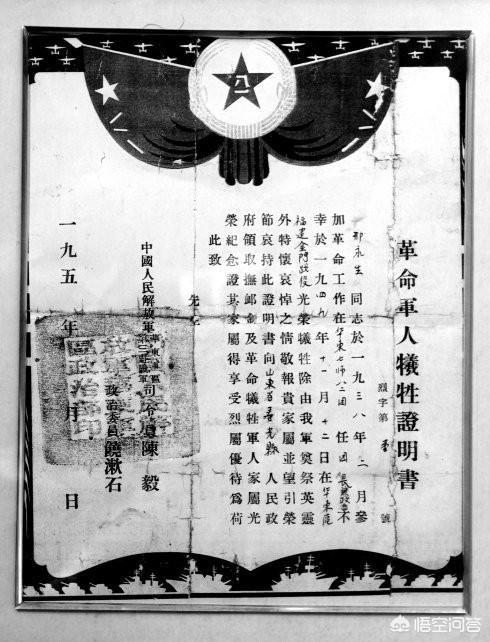 八一
革命軍人犧牲證明書
烈字第 號
邢永生同志於一九三八年二月參
加革命工作在華東七師八二團任團長 不
幸於一九四九年十一月十二日在華東區
福建金門戰役光榮犧牲除由我軍奠祭英靈
外特懷哀悼之情敬報貴家屬並望引榮
節哀持此證明書向山東省壽光縣人民政
府領取撫卹金及革命犧牲軍人家屬光
榮紀念證其家屬得享受烈屬優待爲荷
此致
先生
中國人民解放軍華東軍區第三野戰軍司令員陳毅
政治委員饒漱石
一九五 年 月 日
悟空问答